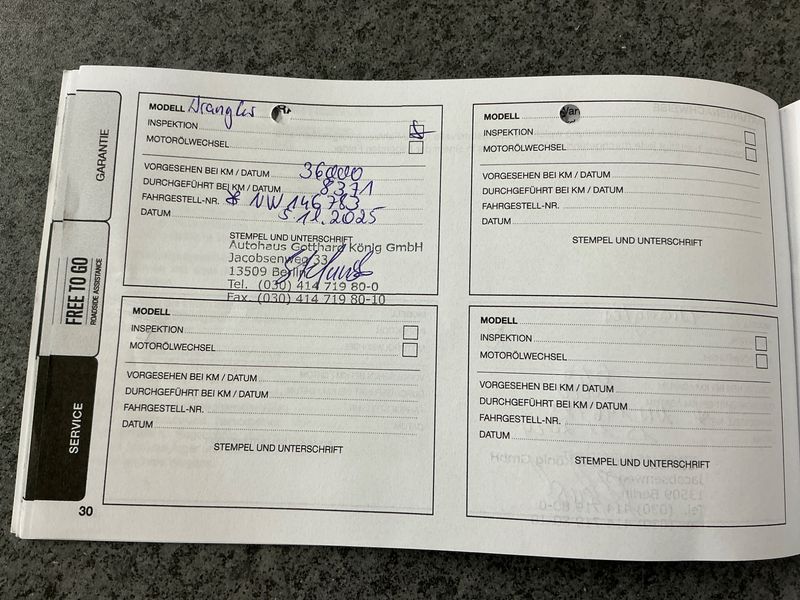 GARANTIE
FREE TO GO
ROADSIDE ASSISTANCE
SERVICE
MODELL Wrangler
INSPEKTION
MOTORÖLWECHSEL
VORGESEHEN BEI KM / DATUM 36000
DURCHGEFÜHRT BEI KM / DATUM 8371
FAHRGESTELL-NR. NW146783
DATUM 5.12.2025
STEMPEL UND UNTERSCHRIFT
Autohaus Gotthard König GmbH
Jacobsenweg 33
13509 Berlin
Tel. (030) 414 719 80-0
Fax. (030) 414 719 80-10
MODELL
INSPEKTION
MOTORÖLWECHSEL
VORGESEHEN BEI KM / DATUM
DURCHGEFÜHRT BEI KM / DATUM
FAHRGESTELL-NR.
DATUM
STEMPEL UND UNTERSCHRIFT
30
MODELL
INSPEKTION
MOTORÖLWECHSEL
VORGESEHEN BEI KM / DATUM
DURCHGEFÜHRT BEI KM / DATUM
FAHRGESTELL-NR.
DATUM
STEMPEL UND UNTERSCHRIFT
MODELL
INSPEKTION
MOTORÖLWECHSEL
VORGESEHEN BEI KM / DATUM
DURCHGEFÜHRT BEI KM / DATUM
FAHRGESTELL-NR.
DATUM
STEMPEL UND UNTERSCHRIFT